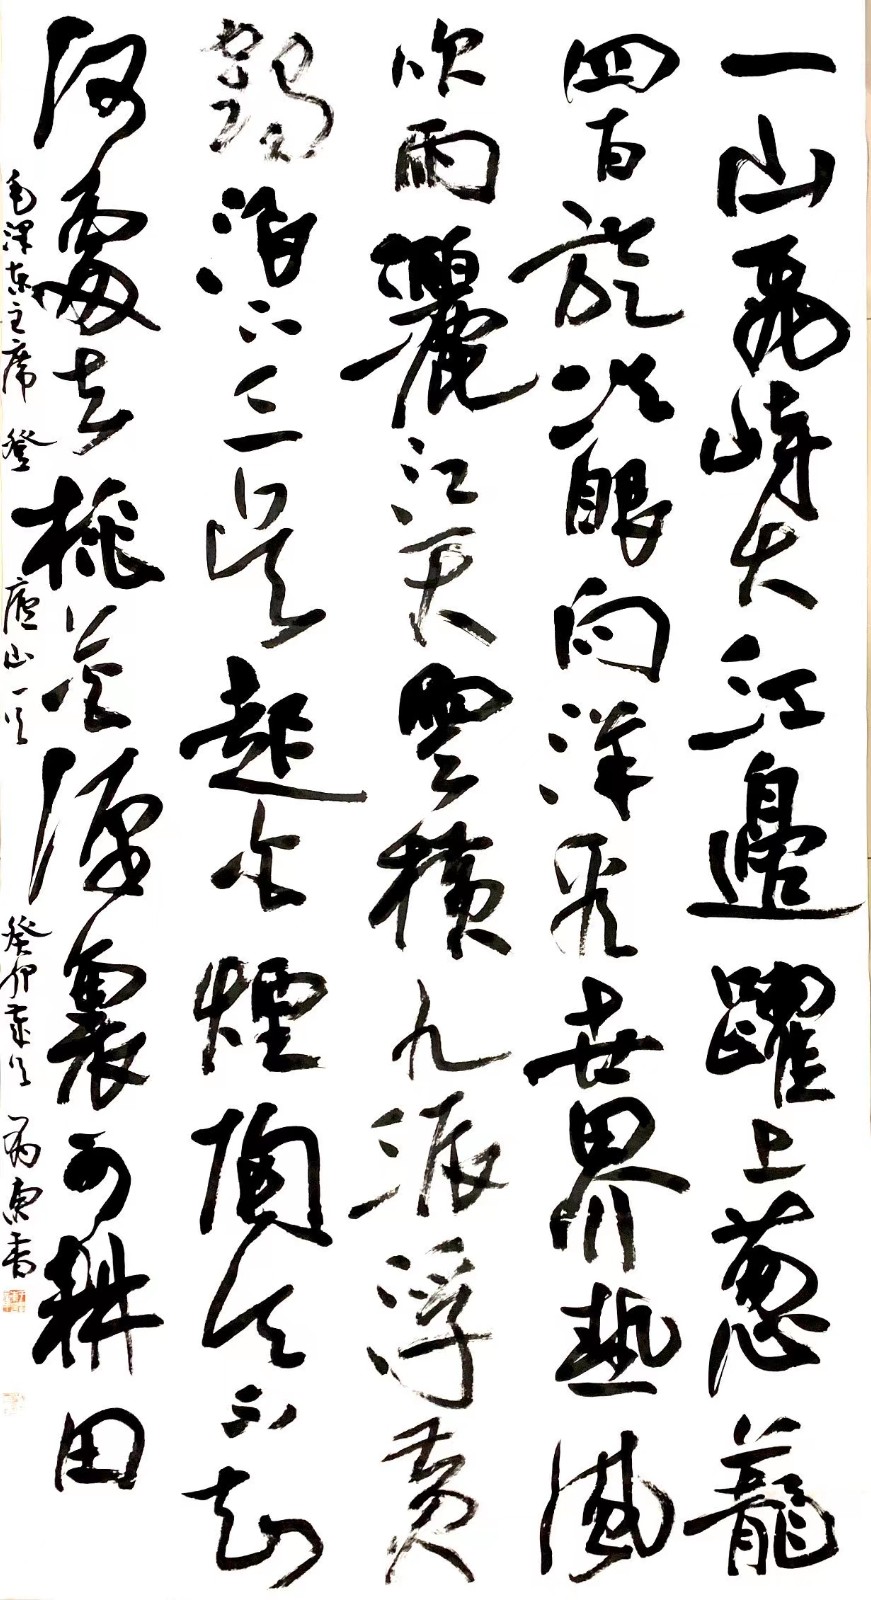 一山飛峙大江邊躍上蔥蘢
四百旋冷眼向洋看世界熱風
吹雨灑江天雲橫九派浮黄
鶴浪下三吴起白煙陶令不知
何處去桃花源裏可耕田
毛澤東主席 登廬山一首 癸卯 東書